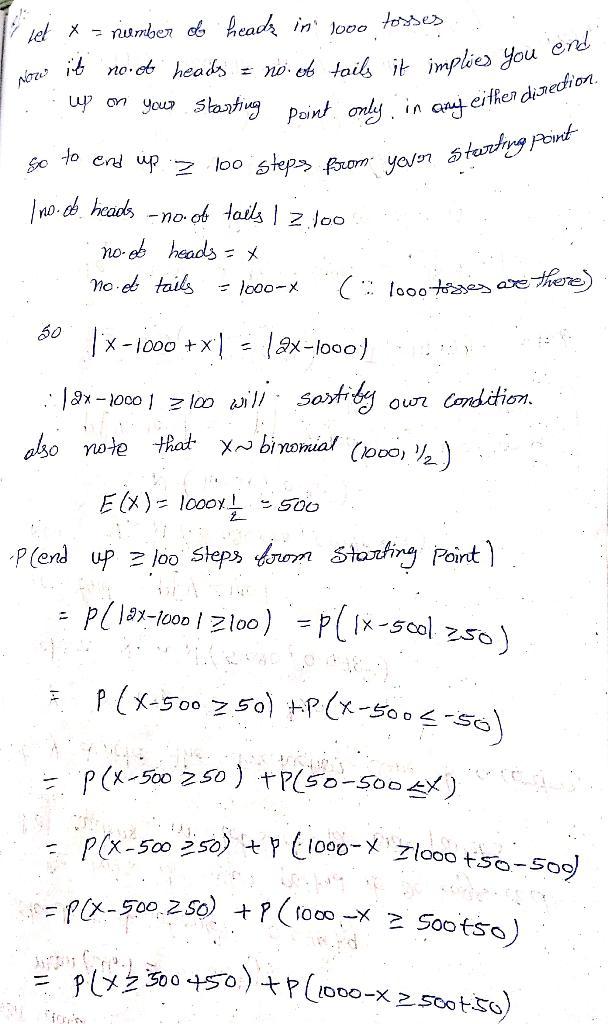 Let X = number of heads in 1000 tosses
Now if no. of heads = no. of tails it implies you end
up on your starting point only. in any either direction.
So to end up ≥ 100 steps from your starting point
|no. of heads - no. of tails| ≥ 100
no. of heads = X
no. of tails = 1000-X (∵ 1000 tosses are there)
so |X-1000+X| = |2X-1000|
∴ |2X-1000| ≥ 100 will sastify our condition.
also note that X~binomial (1000, 1/2)
E(X) = 1000×1/2 = 500
P(end up ≥ 100 steps from starting point)
= P(|2X-1000| ≥ 100) = P(|X-500| ≥ 50)
= P(X-500 ≥ 50) + P(X-500 ≤ -50)
= P(X-500 ≥ 50) + P(50-500 ≤ X)
= P(X-500 ≥ 50) + P(1000-X ≥ 1000+50-500)
= P(X-500 ≥ 50) + P(1000-X ≥ 500+50)
= P(X ≥ 500+50) + P(1000-X ≥ 500+50)